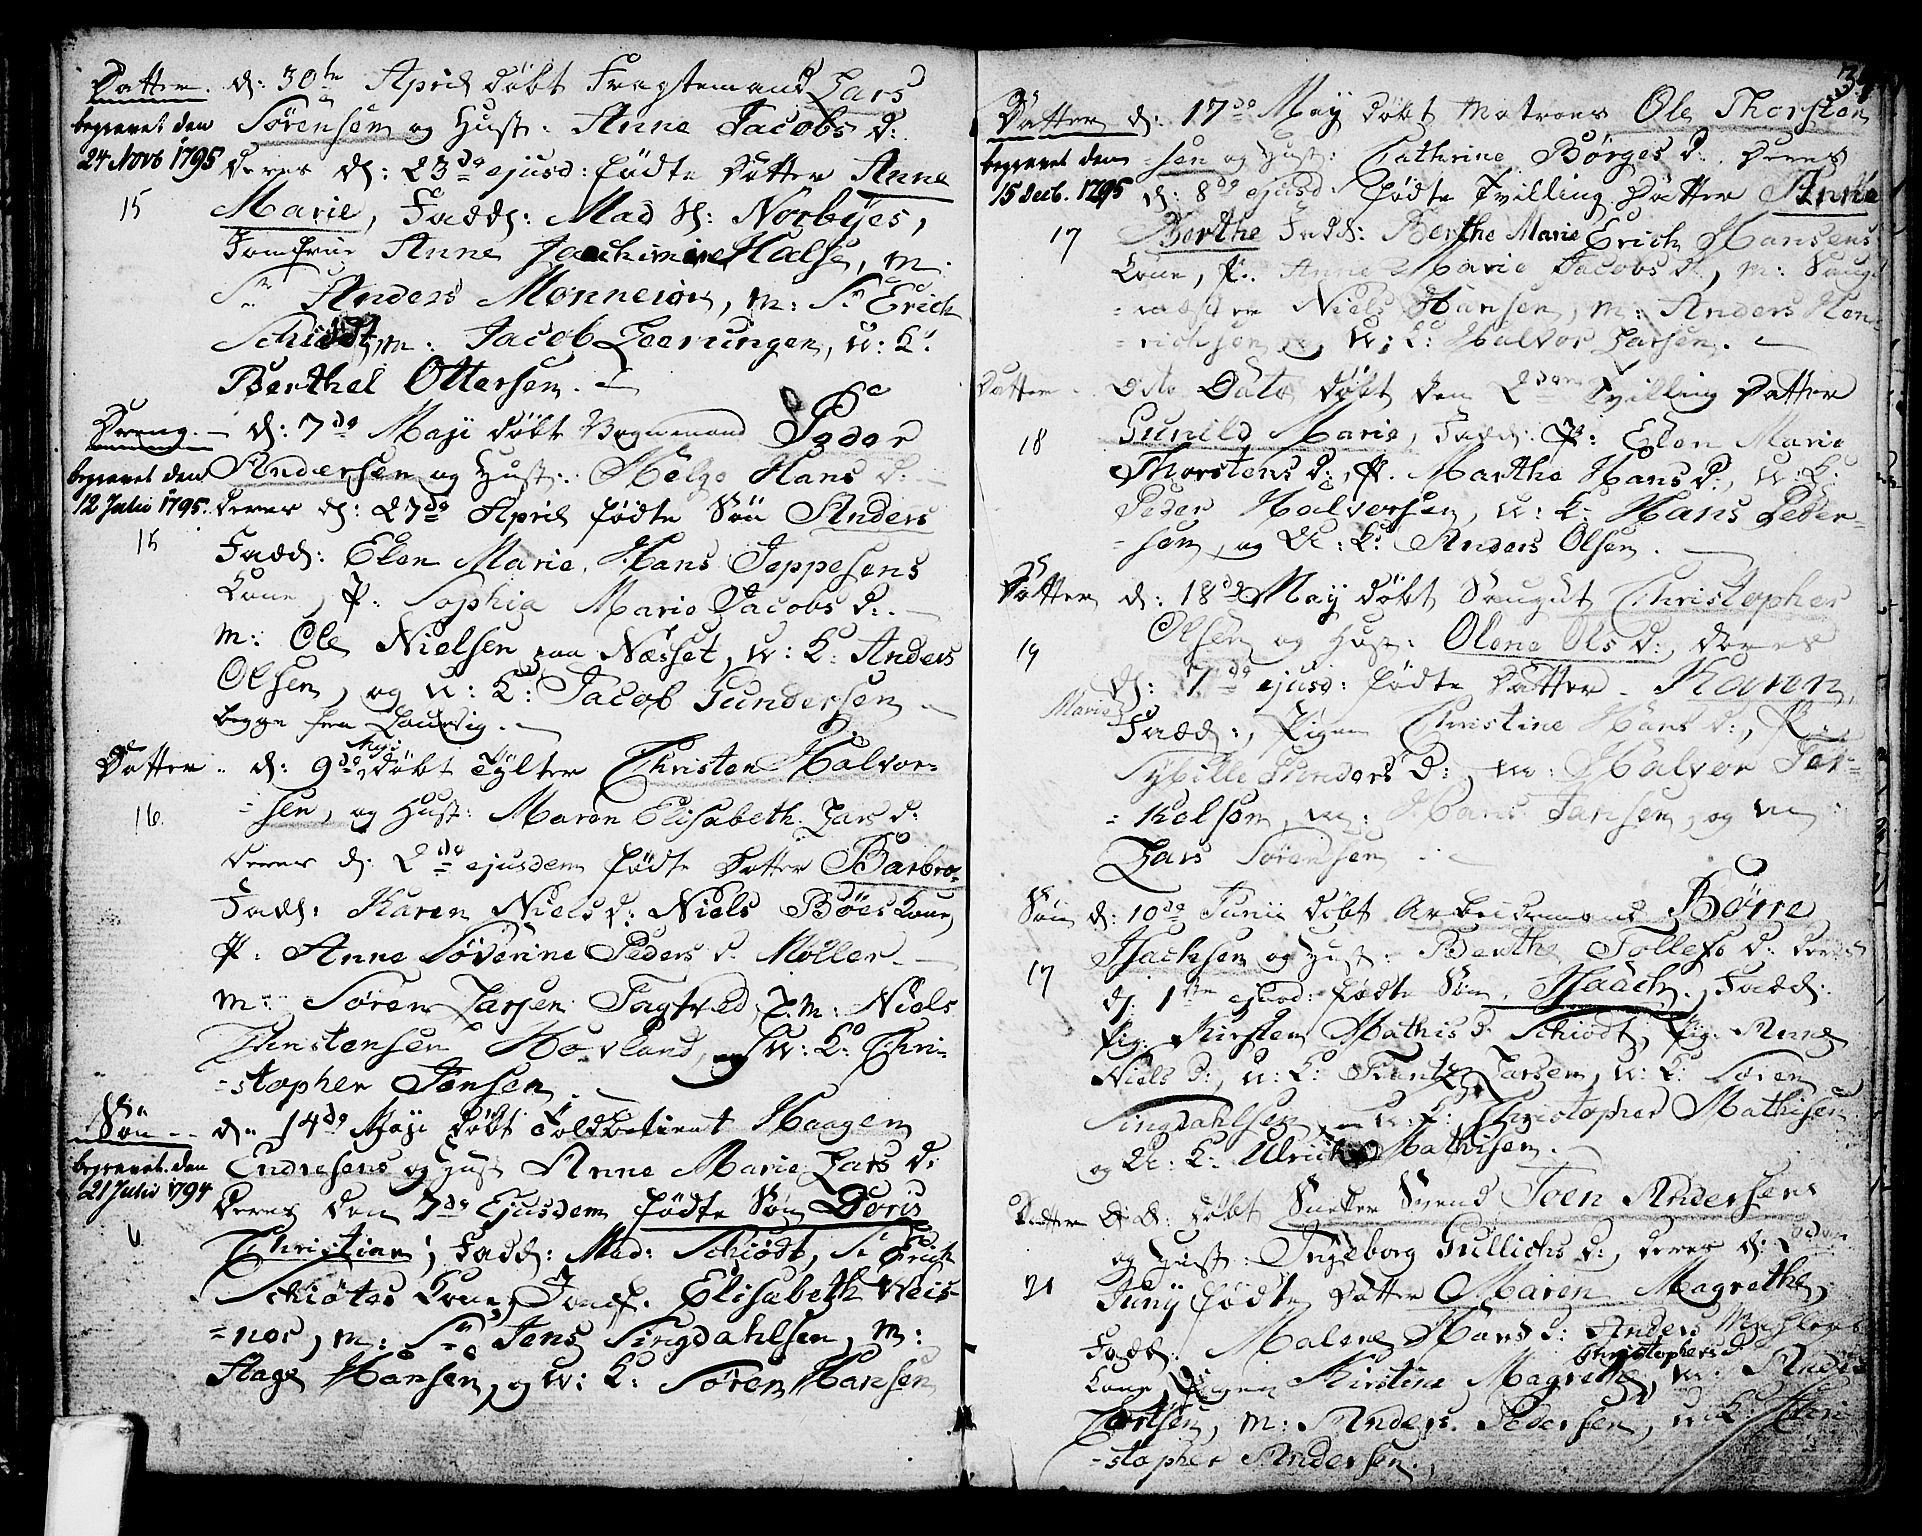 Datter. d: 30te April döbt Fragtemand Lars
begravet den Sörensen og Hust: Anne Jacobs D:
24 Novb 1795 deres d: 23de ejusd: födte Datter Anne
15 Marie, Fadd: Mad H: Norbÿes,
Jomfrue Anne Jochimine Halse, m:
Sr Anders Monneion, m: Sr Erich
Schiödt, m: Jacob Leerungen, u: K:
Berthel Ottersen.
Dreng. d: 7de Maji döbt Vognmand Peder
begravet den Andersen og Hust: Helge Hans D:
12 Julii 1795. deres d: 27de April födte Sön Anders
15 Fadd: Elen Marie, Hans Jeppesens
Kone, P: Sophia Marie Jacobs D:
m: Ole Nielsen paa Næsset, u: K: Anders
Olsen, og u: K: Jacob Gundersen
begge fra Laurvig.
Datter. d: 9de Maji döbt Tylter Christen Halvor=
16. =sen, og Hust: Maren Elisabeth Lars D:
deres d: 2de ejusdem födte Datter Barbro
Fadd: Karen Niels D: Niels Böes Kone
P: Anne Söverine Peders D: Möller
m: Sören Larsen Tagtved, m: Niels
Christensen Hovland, og u: K: Chri=
=stopher Jensen.
Sön d: 14de Maji döbt Toldbetient Haagen
begravet den Endresens og Hust: Anne Marie Lars D:
21 Julii 1794 Deres den 7de Ejusdem födte Sön Joris
Christian, Fadd: Mad: Schiödt, Sr Erich
Schiötes Kone, Jomf. Elisabeth Weis=
=nor, m: Sr Jens Singdahlsen, m:
Hage Hansen, og u: K: Sören Hansen
Datter d: 17de Maÿ döbt Matroos Ole Thorsten
begravet den =sen og Hust: Cathrine Börges D: deres
15 Decb. 1795 d: 8de ejusd: födte Tvilling Datter Anne
17 Berthe Fadd: Berthe Marie Erich Hansens
Kone, P: Anne Marie Jacobs D:, m: Saug
=mester Niels Hansen, m: Anders Hen=
=richsen og u: K: Halvor Larsen.
Datter. Dito Dato döbt den 2den Tvilling Datter
18 Gunild Marie, Fadd: P: Elen Marie
Thorstens D:, P. Marthe Hans D:, u: K:
Peder Halvorsen, u: K: Hans Peder=
=sen, og u: K: Anders Olsen.
Datter d: 18de Maÿ döbt Saugut Christopher
19 Olsen og Hust: Olene Ols D:, deres
d: 7de ejusd: födte Datter Karen
Marie Fadd:, Pigen Christine Hans D:, P:
Sÿbille Anders D:, m: Halvor Tor=
=kelsen, m: Hans Jansen, og m:
Lars Sörensen.
Sön d: 10de Junii döbt Arbeidsmand Börre
17 Isachsen og Hust: Berthe Tollefs D: deres
d: 1ste ejusd: födte Sön, Isaach. Fadd:
Pig: Kirsten Mathis D: Schiödt, Pig: Anne
Niels D:, u: K: Frantz Larsen, u: K: Sören
Singdahlsen, u: K: Christopher Mathisen
og u: K: Ulrich Mathisen.
Datter d: d: döbt Snekker Svend Joen Andersens
og Hust: Ingeborg Gullichs D:, deres d: 2den
21 Junÿ födte Datter Maren Magrethe,
Fadd: Malene Hans D: Anders
Kone, Pigen Kirstine Magrethe Christophers D, m: Anders
Carlsen, m: Anders Pedersen, u: K: Chri
=stopher Andersen.